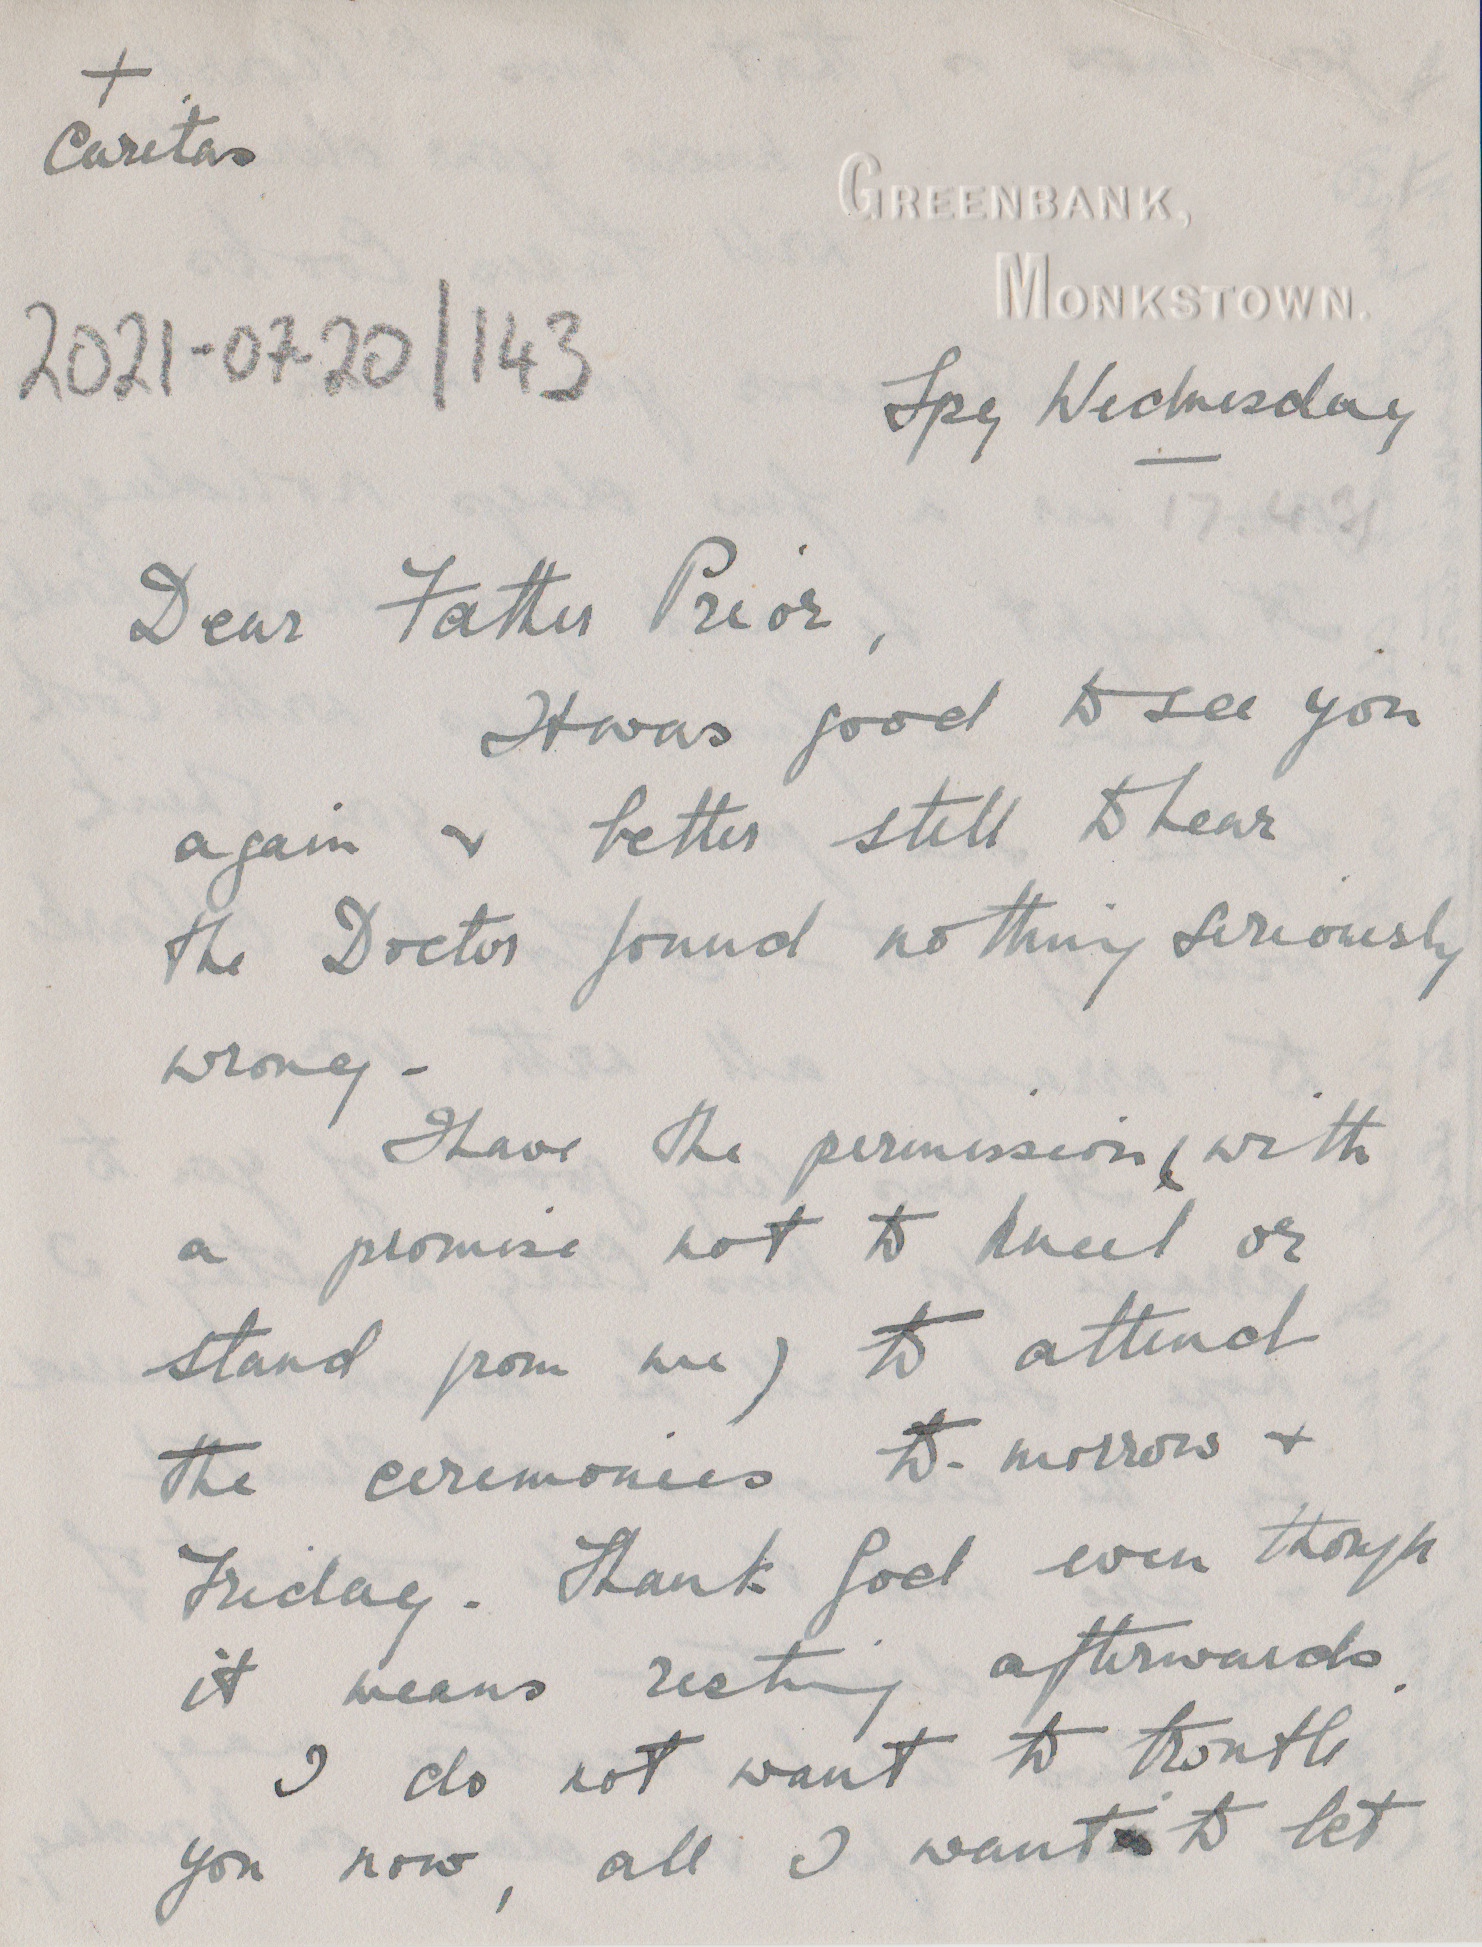 +
Caritas
GREENBANK,
MONKSTOWN.
2021-07-20/143
Spy Wednesday
Dear Father Prior,
It was good to see you
again & better still to hear
the Doctor found nothing seriously
wrong -
I have the permission (with
a promise not to kneel or
stand from me) to attend
the ceremonies to-morrow &
Friday. Thank God even though
it means resting afterwards.
I do not want to trouble
you now, all I want to let